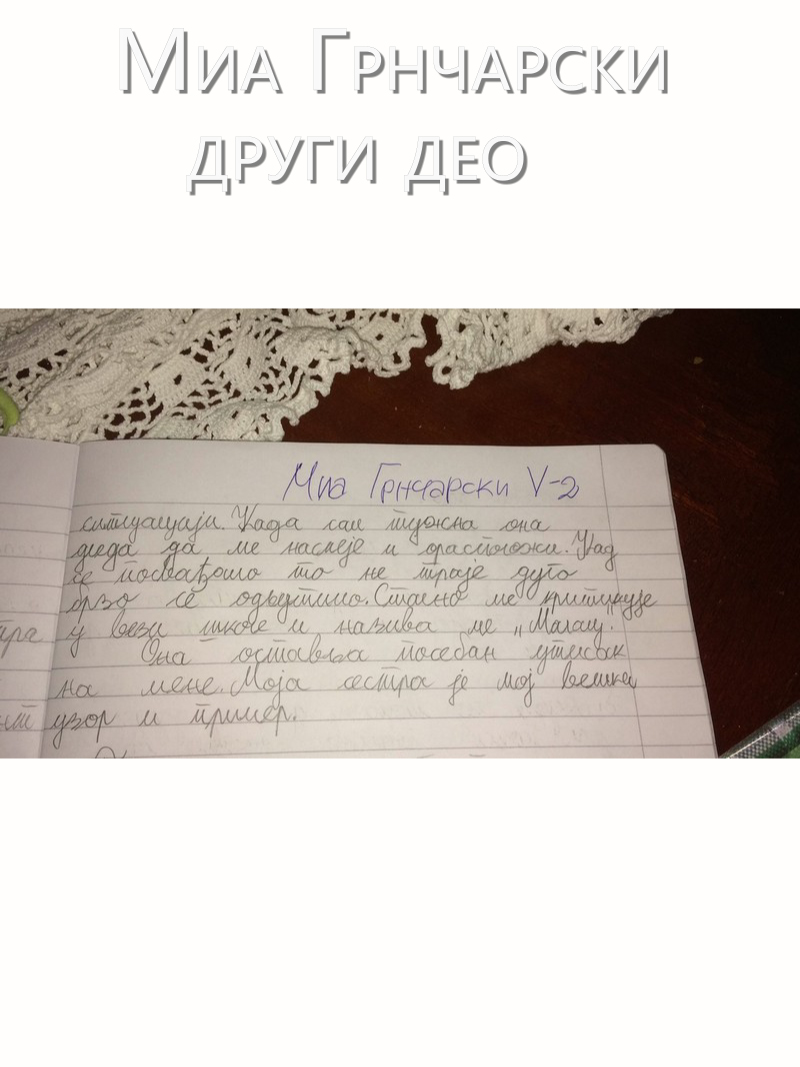 Миа Грнчарски
други део
Миа Грнчарски V-2
ситуацији. Када сам тужна она
гледа да ме насмеје и орасположи. Кад
се посвађамо то не траје дуго
брзо се одљутимо. Стално ме критикује
у вези школе и назива ме „Малац".
Она оставља посебан утисак
на мене. Моја сестра је мој велики
узор и пример.